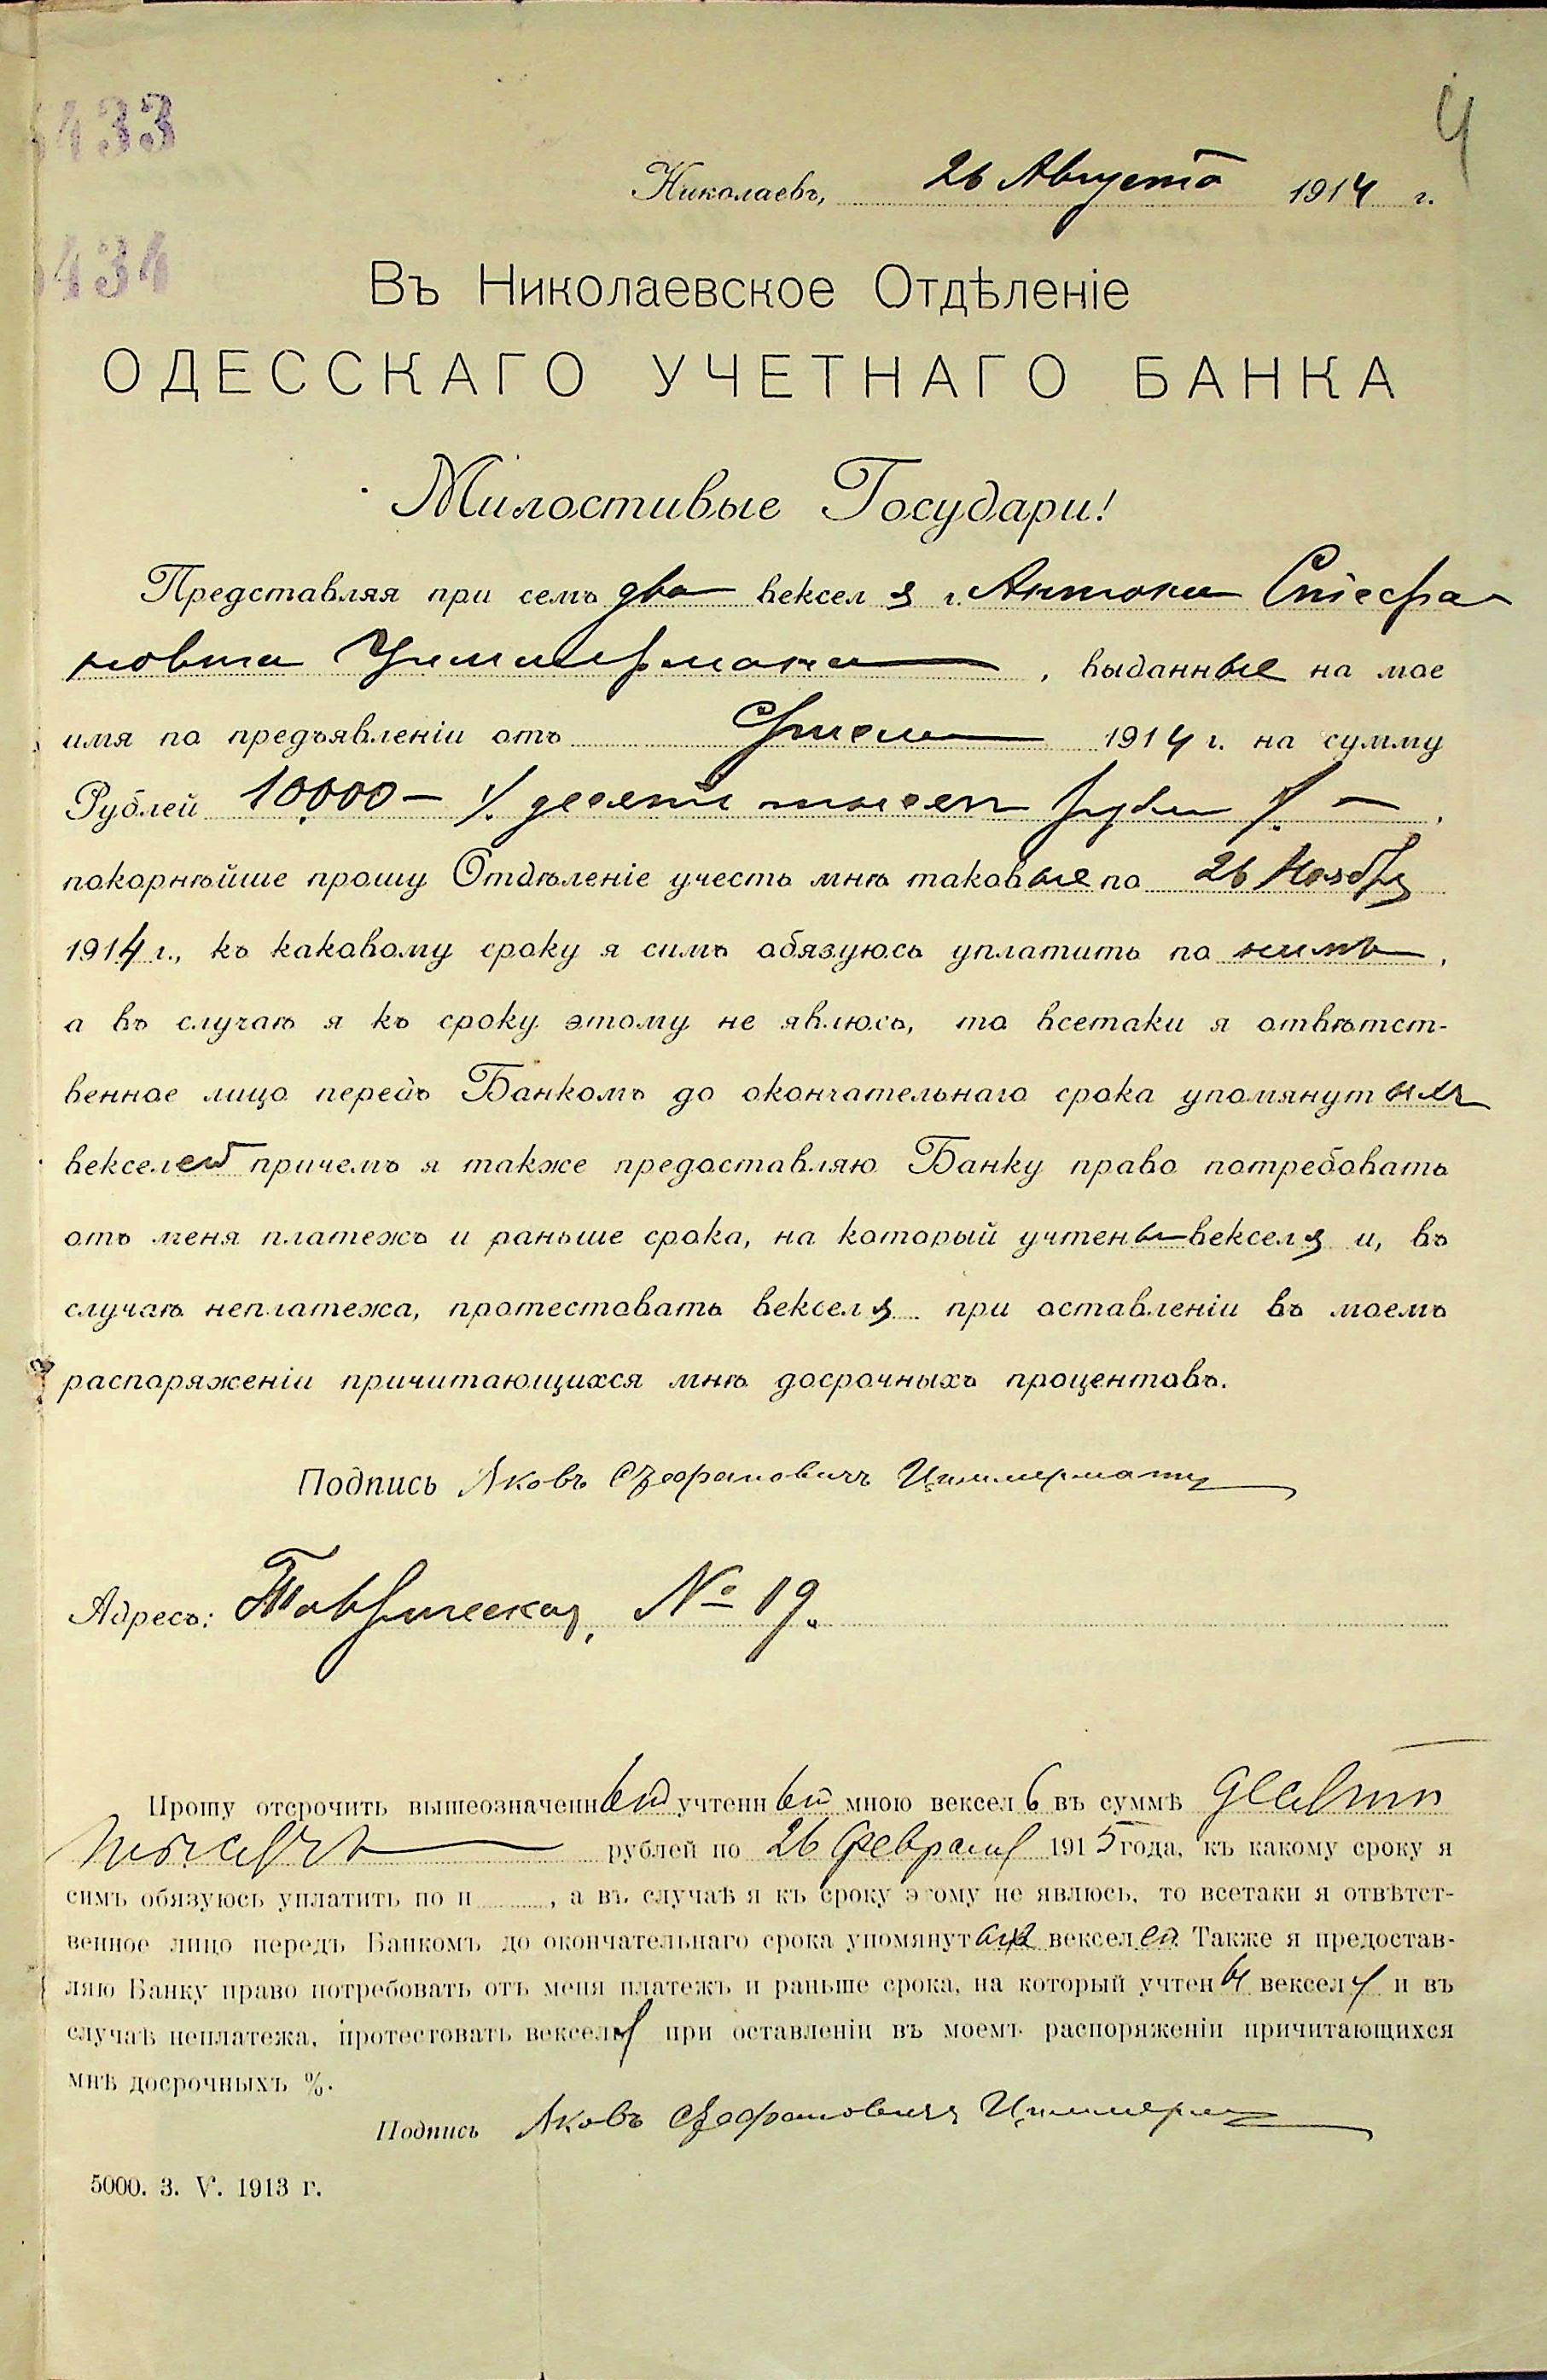 433
4
Николаевъ, 26 Августа 1914 г.
434
Въ Николаевское Отдѣленіе
ОДЕССКАГО УЧЕТНАГО БАНКА
Милостивые Государи!
Представляя при семъ два вексел я г. Антона Стефа
новича Циммермана , выданные на мое
имя по предъявленіи отъ 1914 г. на сумму
Рублей 10.000 — десять тысяч рубл —,
покорнѣйше прошу Отдѣленіе учесть мнѣ таковые по 26 Ноября
1914 г., къ каковому сроку я симъ обязуюсь уплатить по нимъ ,
а въ случаѣ я къ сроку этому не явлюсь, то всетаки я отвѣтст-
венное лицо передъ Банкомъ до окончательнаго срока упомянут ыхъ
векселей причемъ я также предоставляю Банку право потребовать
отъ меня платежъ и раньше срока, на который учтены векселя и, въ
случаѣ неплатежа, протестовать векселя при оставленіи въ моемъ
распоряженіи причитающихся мнѣ досрочныхъ процентовъ.
Подпись Яковъ Стефановичъ Циммерманъ
Адресъ: Таврическая, № 19.
Прошу отсрочить вышеозначенный учтенный мною вексел ь въ суммѣ десять
тысячъ рублей по 26 Февраля 1915 года, къ какому сроку я
симъ обязуюсь уплатить по н , а въ случаѣ я къ сроку этому не явлюсь, то всетаки я отвѣтст-
венное лицо передъ Банкомъ до окончательнаго срока упомянутыхъ векселей Также я предостав-
ляю Банку право потребовать отъ меня платежъ и раньше срока, на который учтены векселя и въ
случаѣ неплатежа, протестовать векселя при оставленіи въ моемъ распоряженіи причитающихся
мнѣ досрочныхъ %.
Подпись Яковъ Стефановичъ Циммерманъ
5000. 3. V. 1913 г.